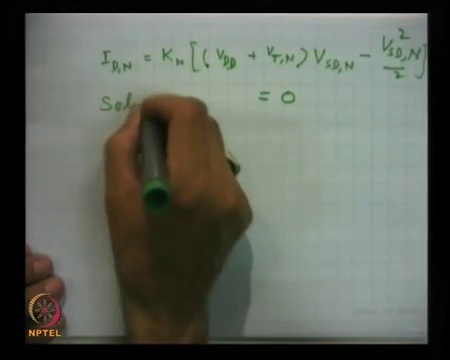 I_{D,N} = K_N [ ( V_{DD} + V_{T,N} ) V_{SD,N} - \frac{V_{SD,N}^2}{2} ]
= 0
NPTEL